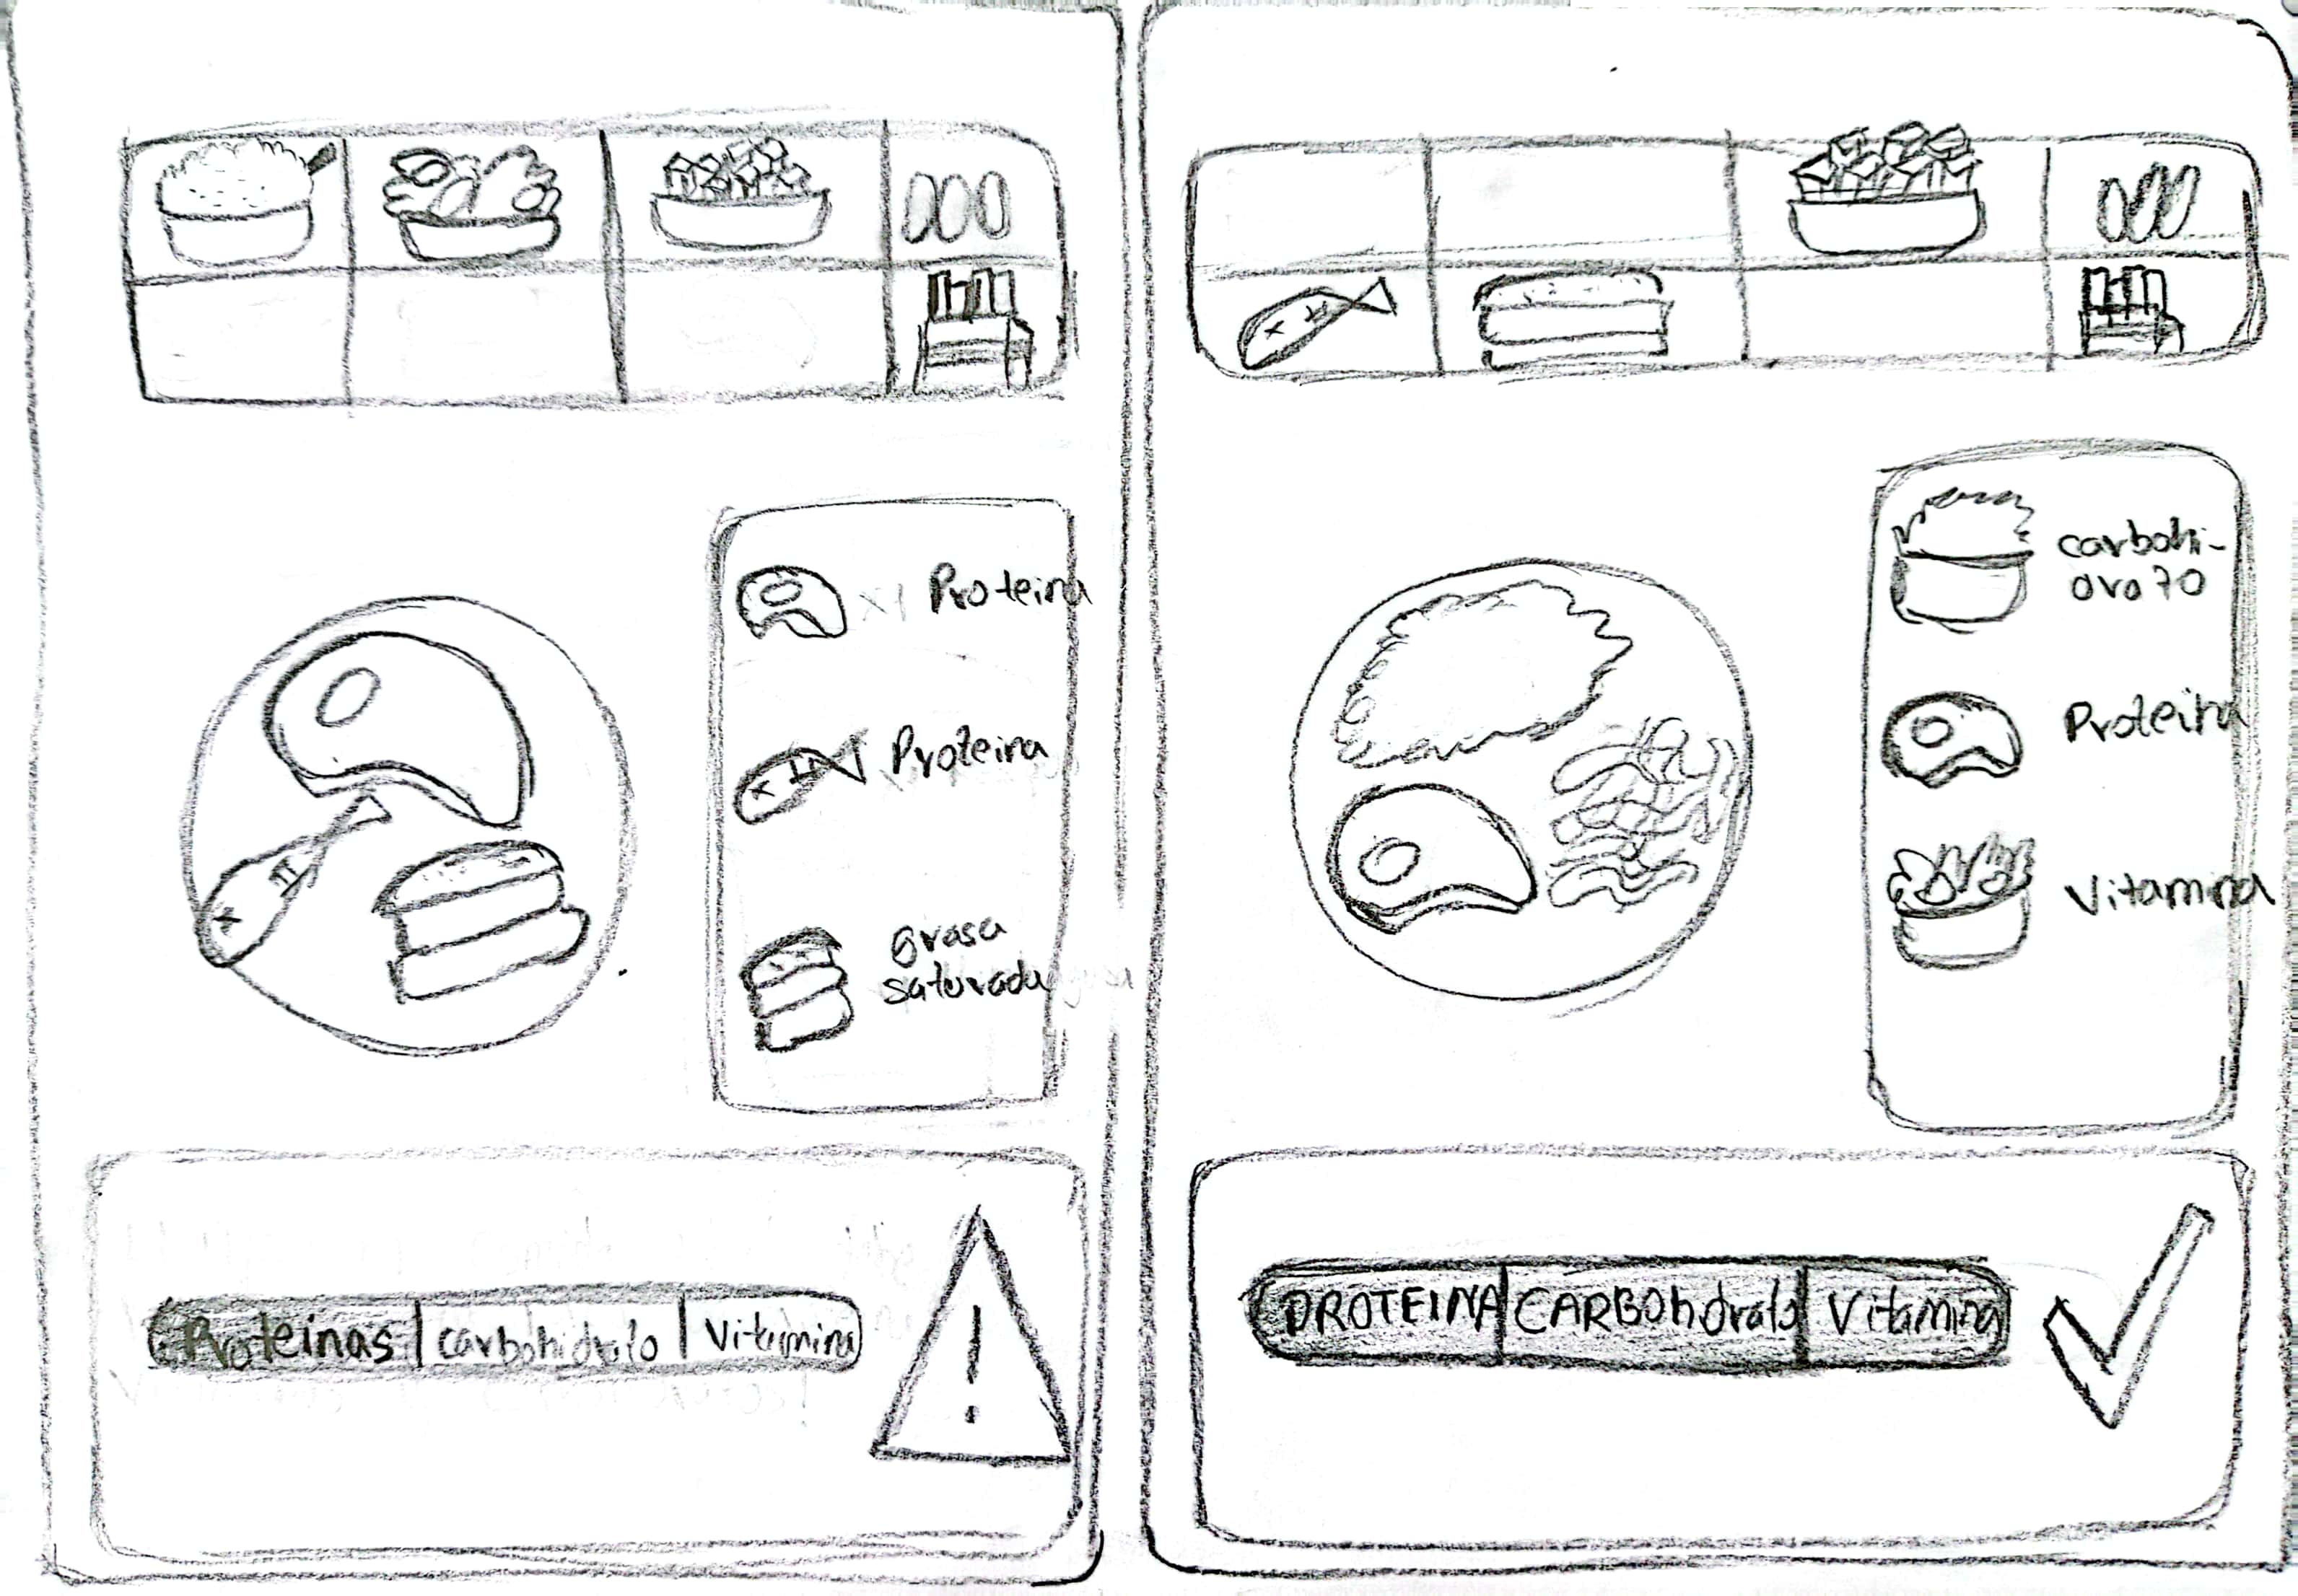 x1 Proteina
Proteina
grasa
saturada
Proteinas carbohidrato vitamina
!
carbohi-
drato
Proteina
Vitamina
PROTEINA CARBOhidrato Vitamina